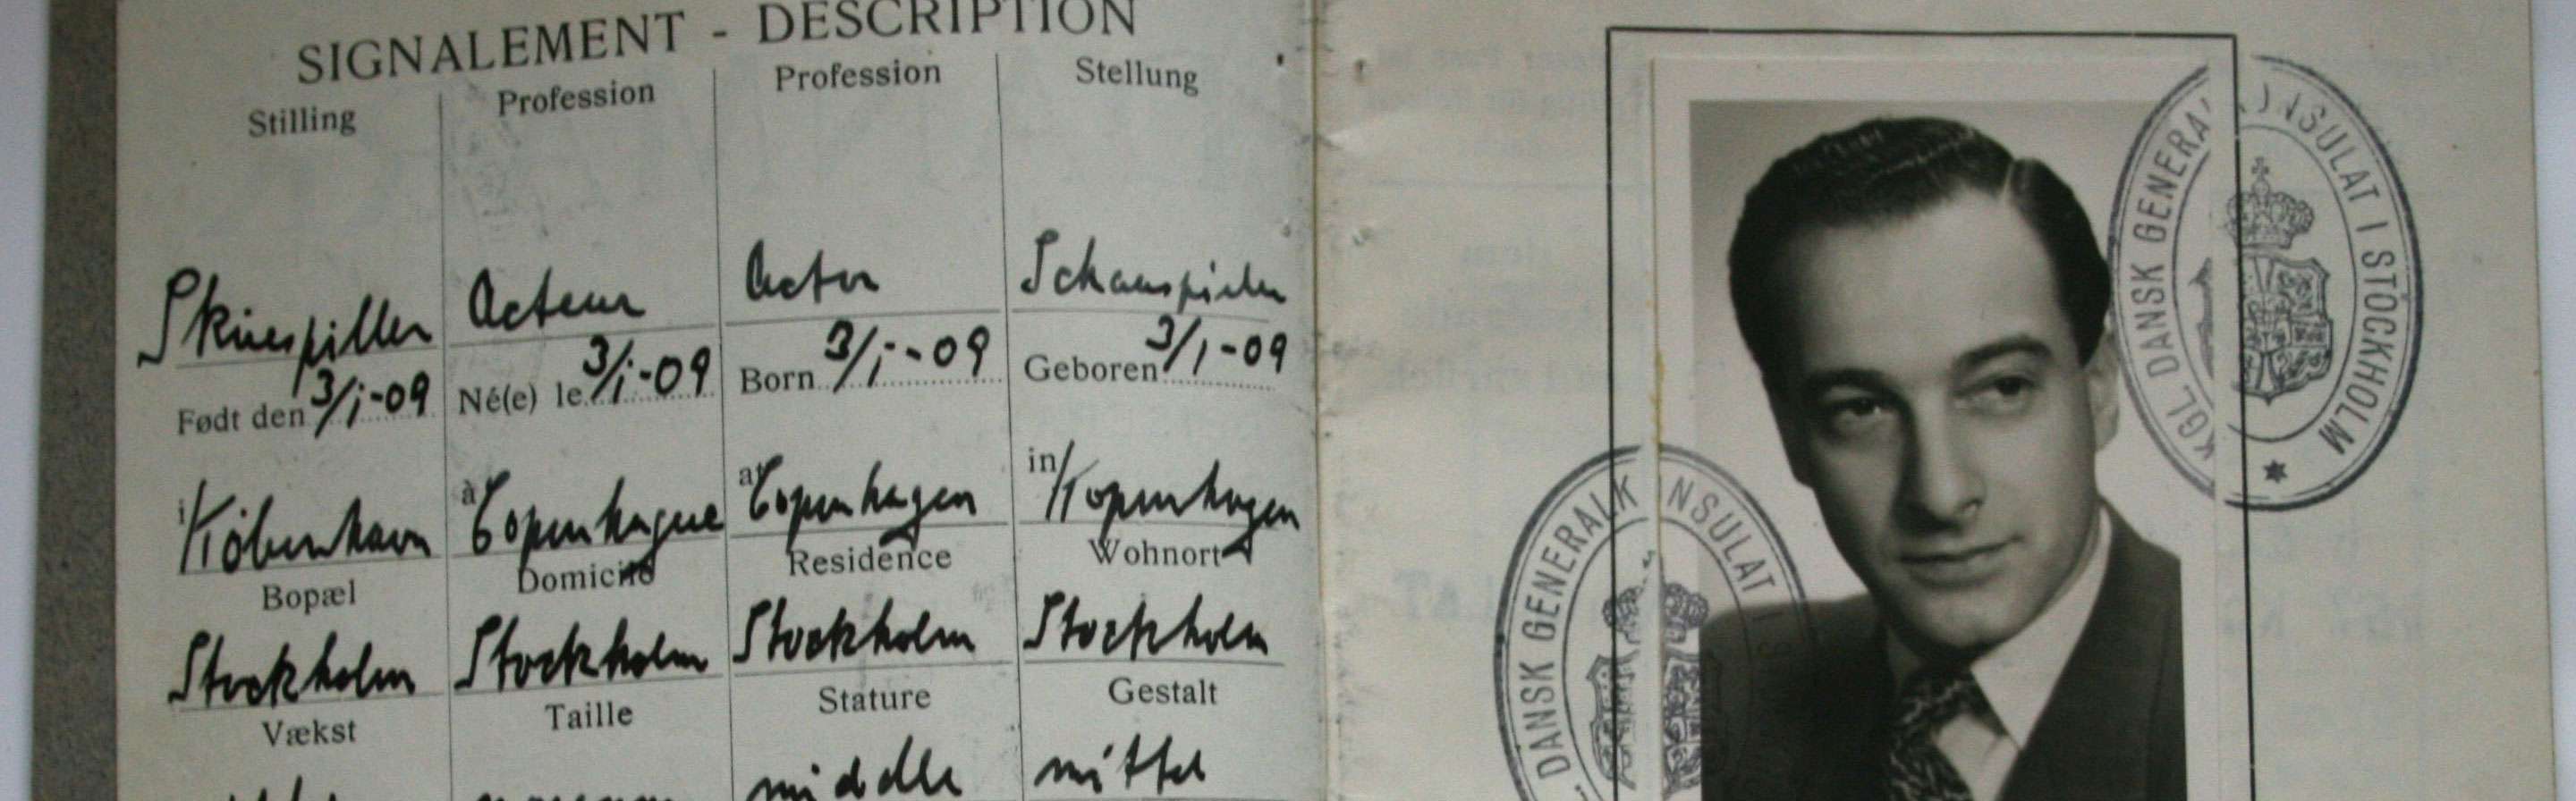 SIGNALEMENT - DESCRIPTION
Stilling Profession Profession Stellung
Skuespiller Acteur Actor Schauspieler
Født den 3/1-09 Né(e) le 3/1-09 Born 3/1-09 Geboren 3/1-09
i København à Copenhague at Copenhagen in Kopenhagen
Bopæl Domicile Residence Wohnort
Stockholm Stockholm Stockholm Stockholm
Vækst Taille Stature Gestalt
middle mittel
KGL DANSK GENERALKONSULAT I STOCKHOLM
DANSK GENERALK NSULAT I S